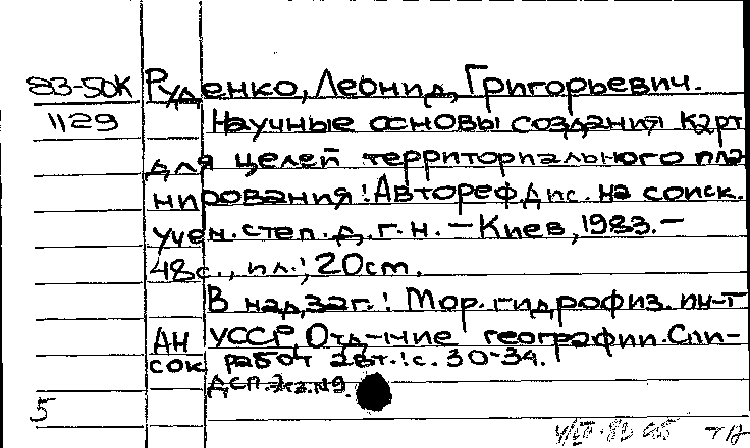 83-50К Руденко, Леонид Григорьевич.
1129 Научные основы создания карт
для целей территориального пла
нирования: Автореф. дис. на соиск.
учен. степ. д. г. н. – Киев, 1983. –
48с., ил.; 20cm.
В надзаг.: Мор. гидрофиз. ин-т
АН УССР, Отд-ние географии. Спи-
сок работ авт.: с. 30-34.
ДСП. Экз. №9.
5